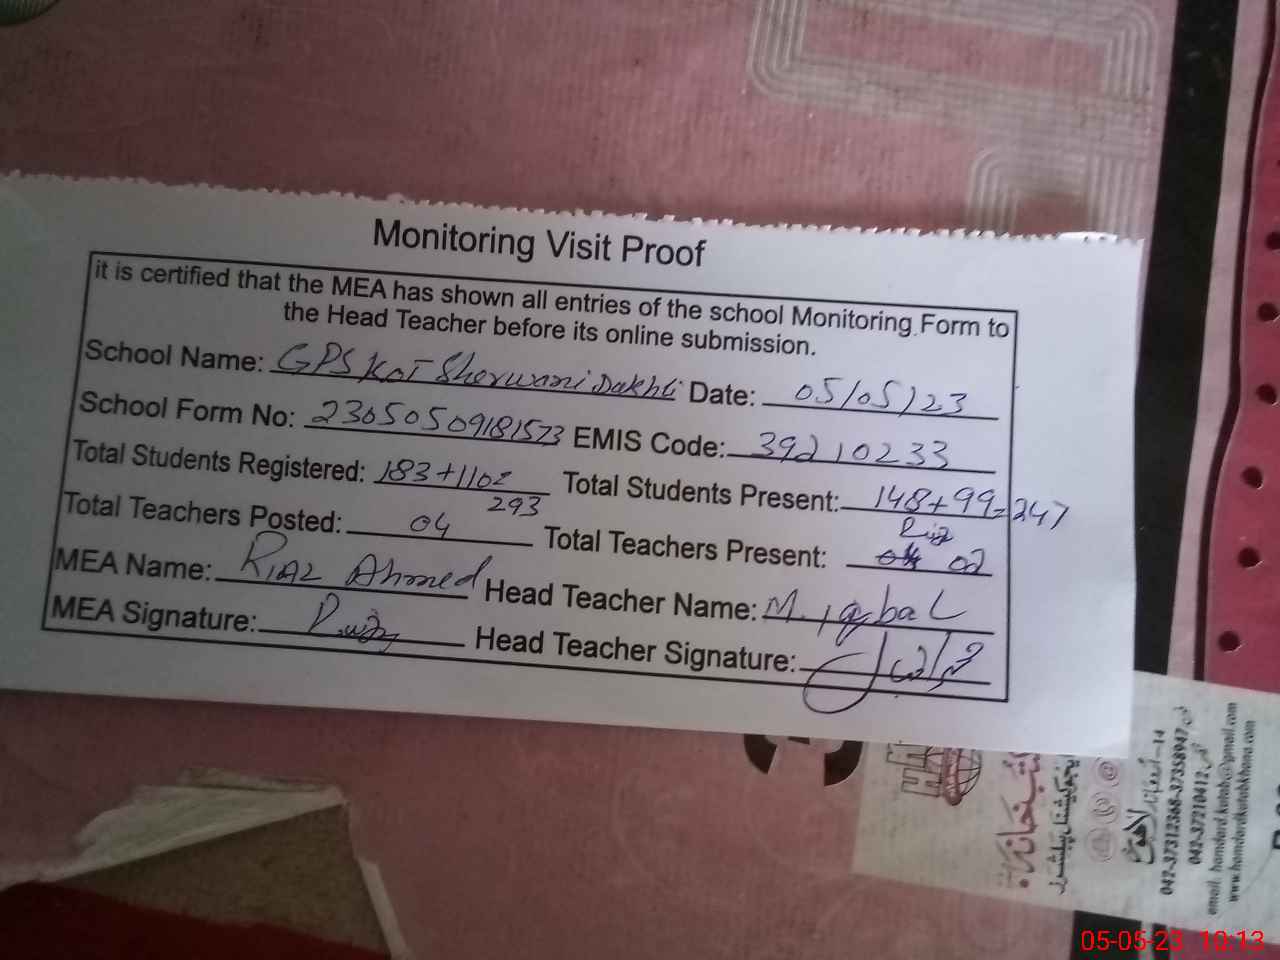 Monitoring Visit Proof
it is certified that the MEA has shown all entries of the school Monitoring Form to
the Head Teacher before its online submission.
School Name: GPS Kot Sherwani Dakhli Date: 05/05/23
School Form No: 23050509181573 EMIS Code: 39210233
Total Students Registered: 183+110= 293 Total Students Present: 148+99=247
Total Teachers Posted: 04 Total Teachers Present: 02
MEA Name: Riaz Ahmed Head Teacher Name: M. iqbal
MEA Signature: Head Teacher Signature:
042-37312368-37358947
042-37210412
email: hamdard.kutab@gmail.com
www.hamdardkutabkhana.com
05-05-23 10:13